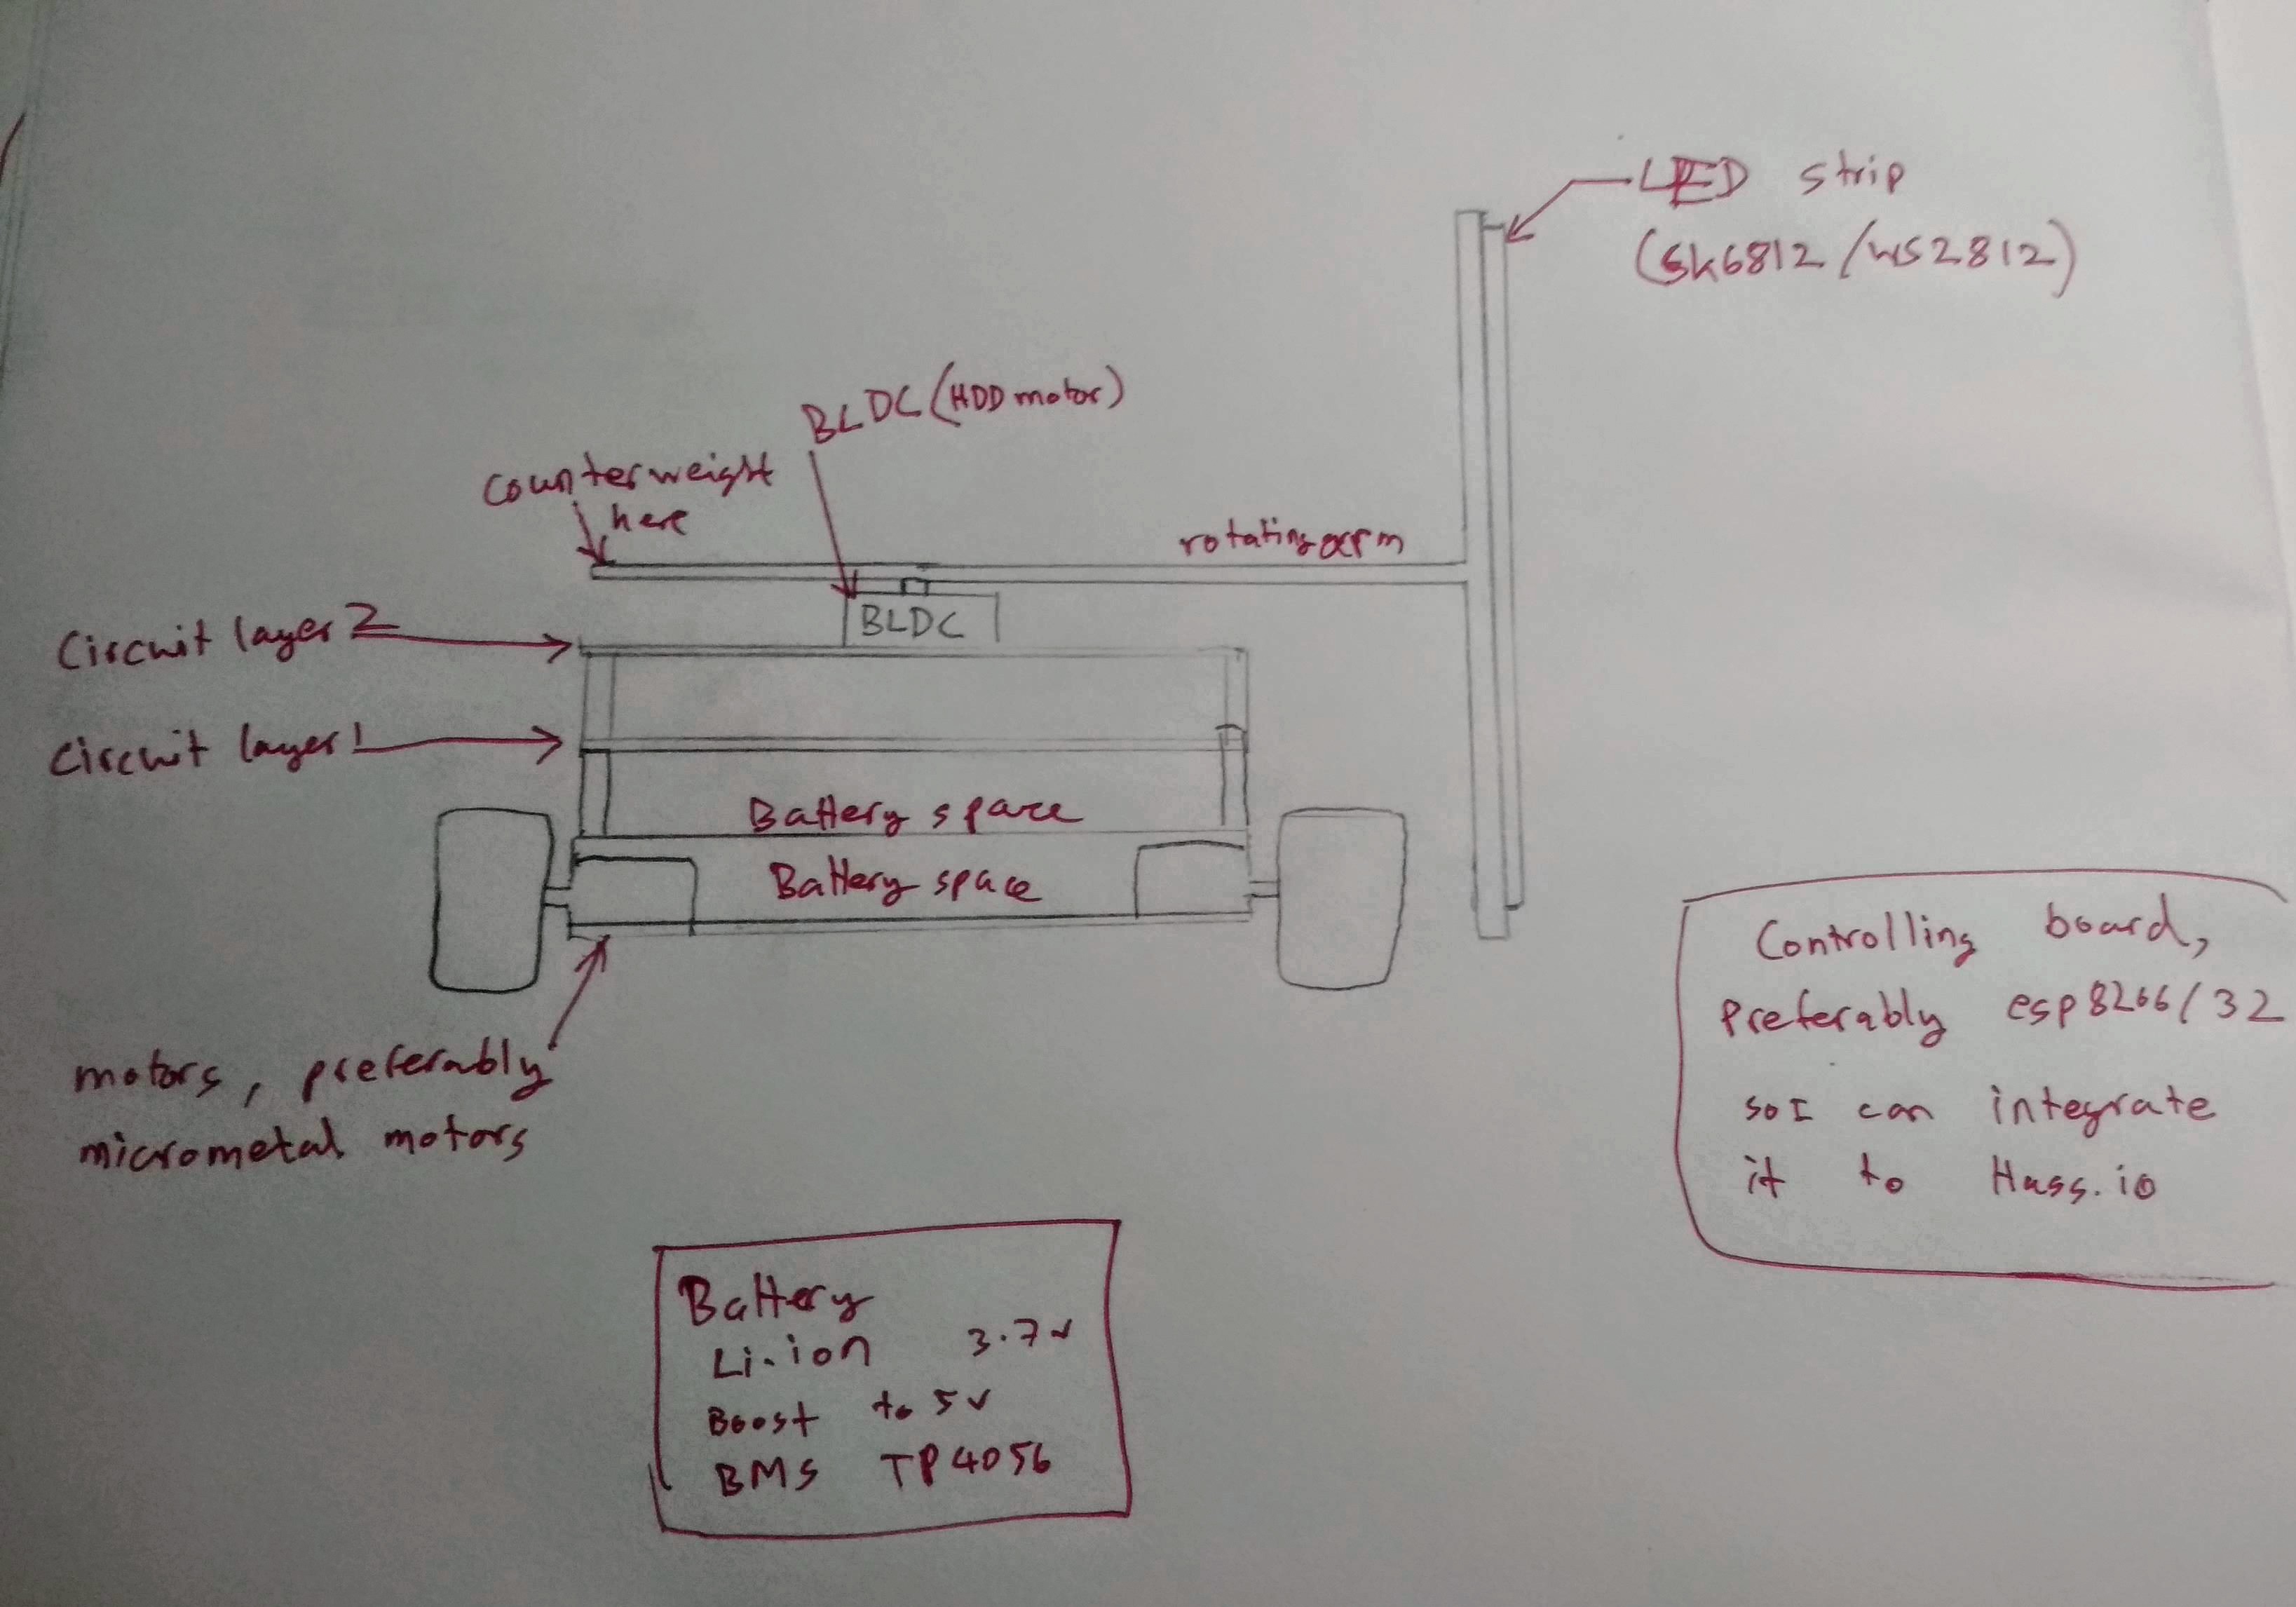 LED strip
(Sk6812/WS2812)
BLDC (HDD motor)
counterweight
here
rotating arm
BLDC
Circuit layer 2
Circuit layer 1
Battery space
Battery space
motors, preferably
micrometal motors
Controlling board,
Preferably esp8266/32
so I can integrate
it to Hass.io
Battery
Li-ion 3.7v
Boost to 5v
BMS TP4056